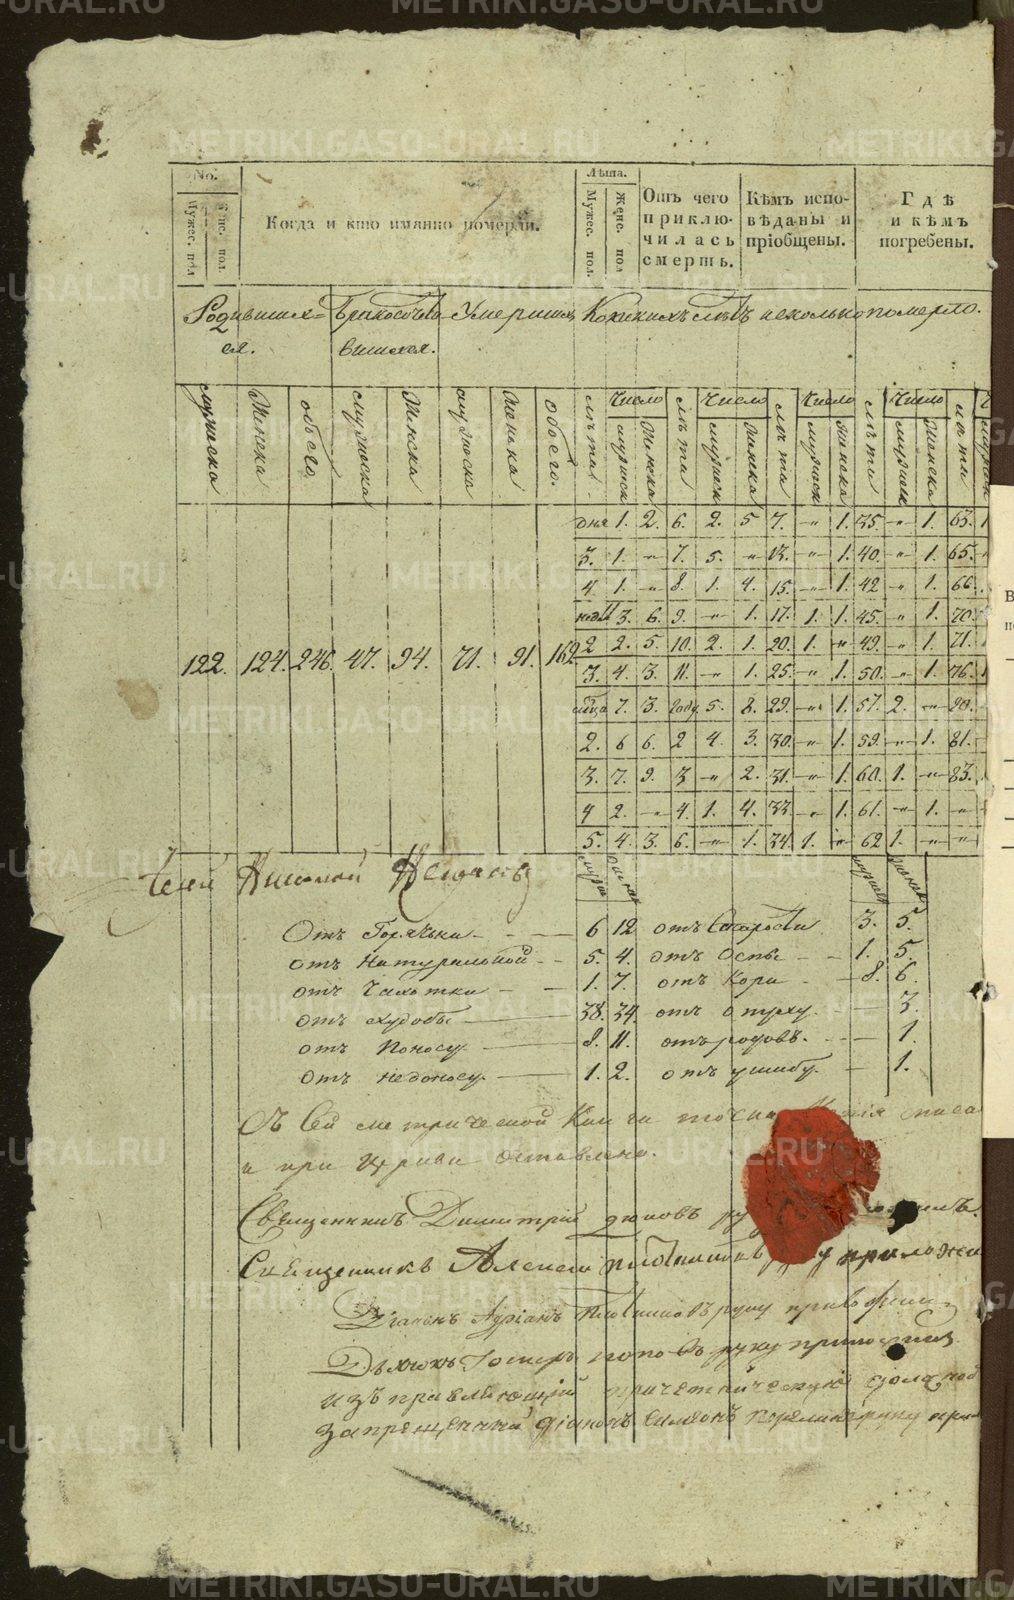 METRIKI.GASO-URAL.RU
No.
Мужес. пол
Женс. пол.
Когда и кто имянно померли.
Лѣта.
Мужес. пол.
Женс. пол
Отъ чего приклю-
чилась смерть.
Кѣмъ испо-
вѣданы и
пріобщены.
Гдѣ
и кѣмъ
погребены.
Родивших=
ся.
Бракосочета
вшихся.
Умершихъ
Коликихъ лѣтъ и сколько померло.
мужеска
Женска
обоего
мужеска
Женска
мужеска
Женска
обоего.
лѣта
Число
мужеск
Женска
лѣта
Число
мужеск
Женска
лѣта
Число
мужеск
Женска
лѣта
Число
мужеск
Женска
лета
дня 1. 2. 6. 2. 5 7. -"- 1. 35. -"- 1. 63. 1
3. 1. -"- 7. 5. -"- 13. -"- 1. 40. -"- 1. 65.
4 1. -"- 8. 1. 4. 15. -"- 1. 42 -"- 1. 66.
3. 6. 9. -"- 1. 17. 1. 1. 45. -"- 1. 70.
2 2. 5. 10. 2. 1. 20. 1. -"- 49. -"- 1. 71.
122. 124. 246. 47. 94. 71. 91. 162
3. 4. 3. 11. -"- 1. 25. -"- 1. 50. -"- 1. 76.
7. 3. году 5. 8. 29. -"- 1. 57. 2. -"- 80.
2. 6 6. 2 4. 3. 30. -"- 1. 59. -"- 1. 81.
3. 7. 9. 3 -"- 2. 31. -"- 1. 60. 1. -"- 83.
4 2. -"- 4. 1. 4. 33. -"- 1. 61. -"- 1. -"-
5. 4. 3. 6. -"- 1. 34. 1. -"- 62 1. -"- -"-
Отъ Горячки 6 12 отъ Старости 3. 5.
отъ Натуральной 5. 4. отъ Оспы 1. 5.
отъ Чахотки 1. 7. отъ Кори 8. 6.
отъ худобы 38. 34. отъ опуху. 3.
отъ Поносу 8. 11. отъ родовъ. 1.
отъ недоносу 1. 2. отъ ушибу. 1.
Съ Сей метрической Книги точная Копія списа
и при церкви оставлена.
Священникъ Димитрій
Священникъ Алексей Плотниковъ приложи
Діаконъ Адріанъ Плотниковъ руку приложилъ
Дьячокъ Поповъ руку приложилъ
изправляющій причетническую должнос
запрещенный діаконъ Симеонъ руку при